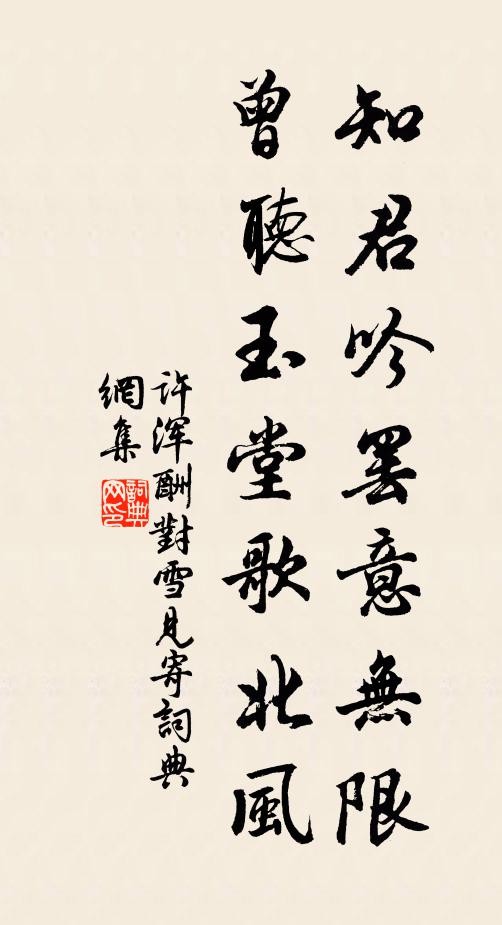 知君吟罷意無限
曾聽玉堂歌北風
許渾酬對雪見寄詞典
網集
詞典網印